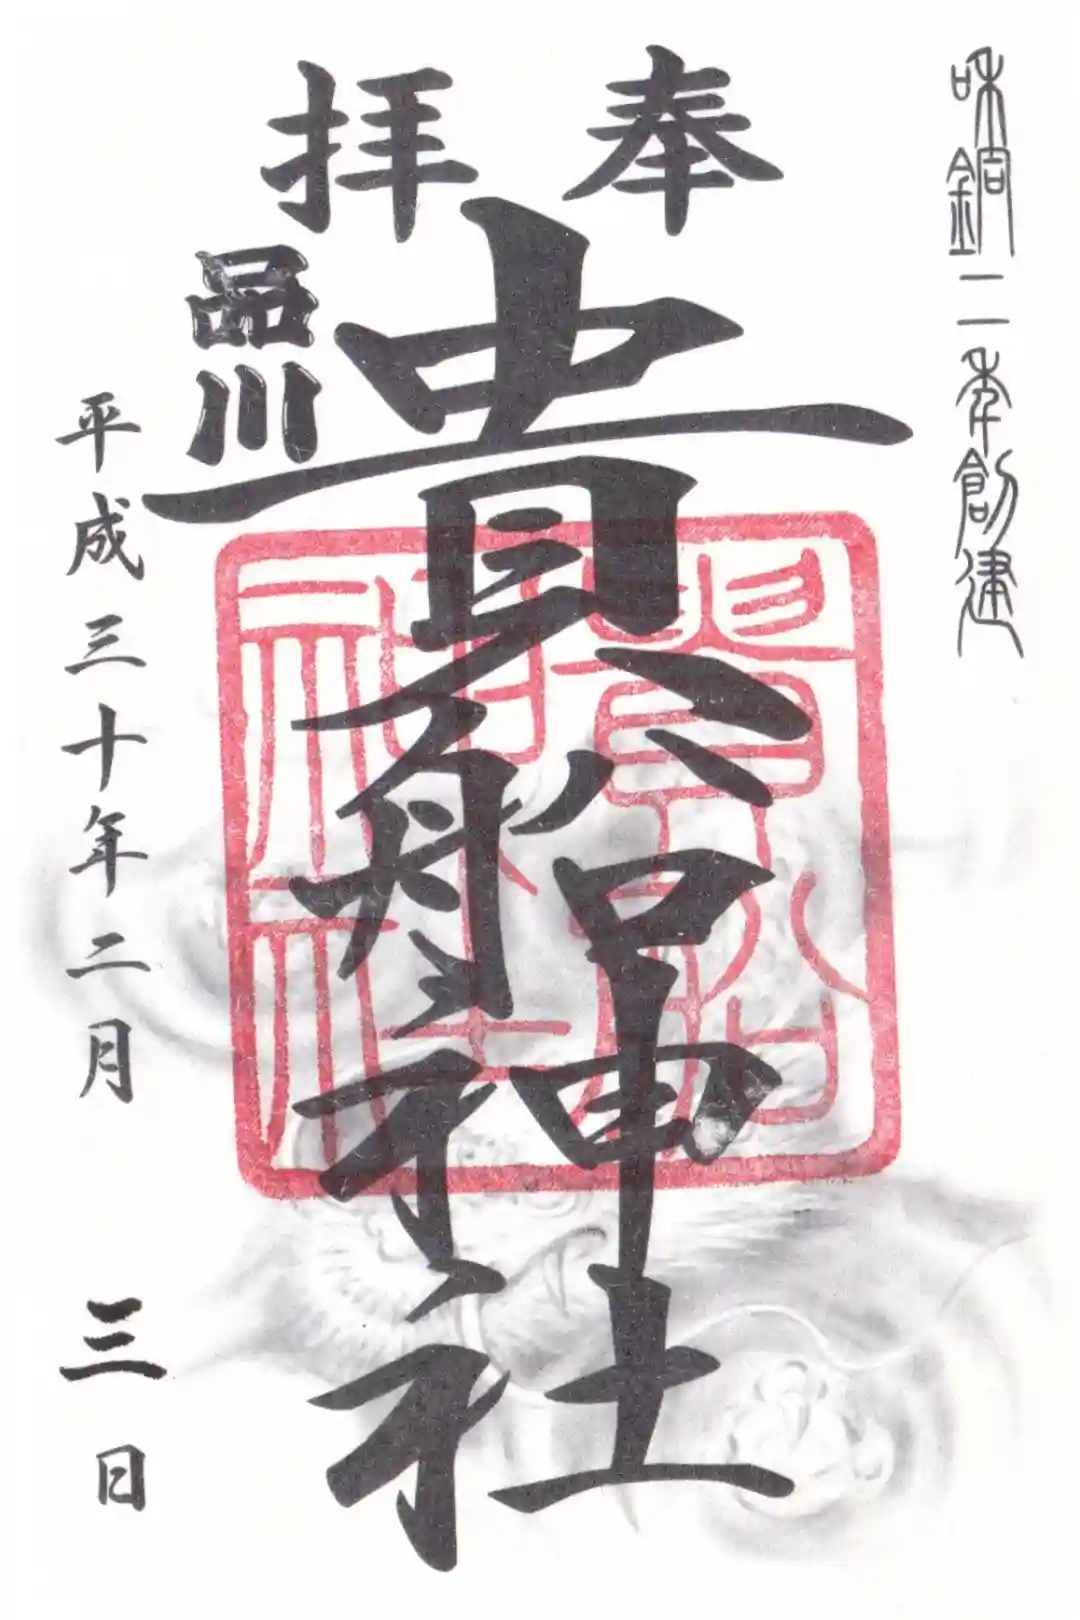 和銅二年創建
奉拝
貴船神社
品川
平成三十年二月三日
貴船
神社